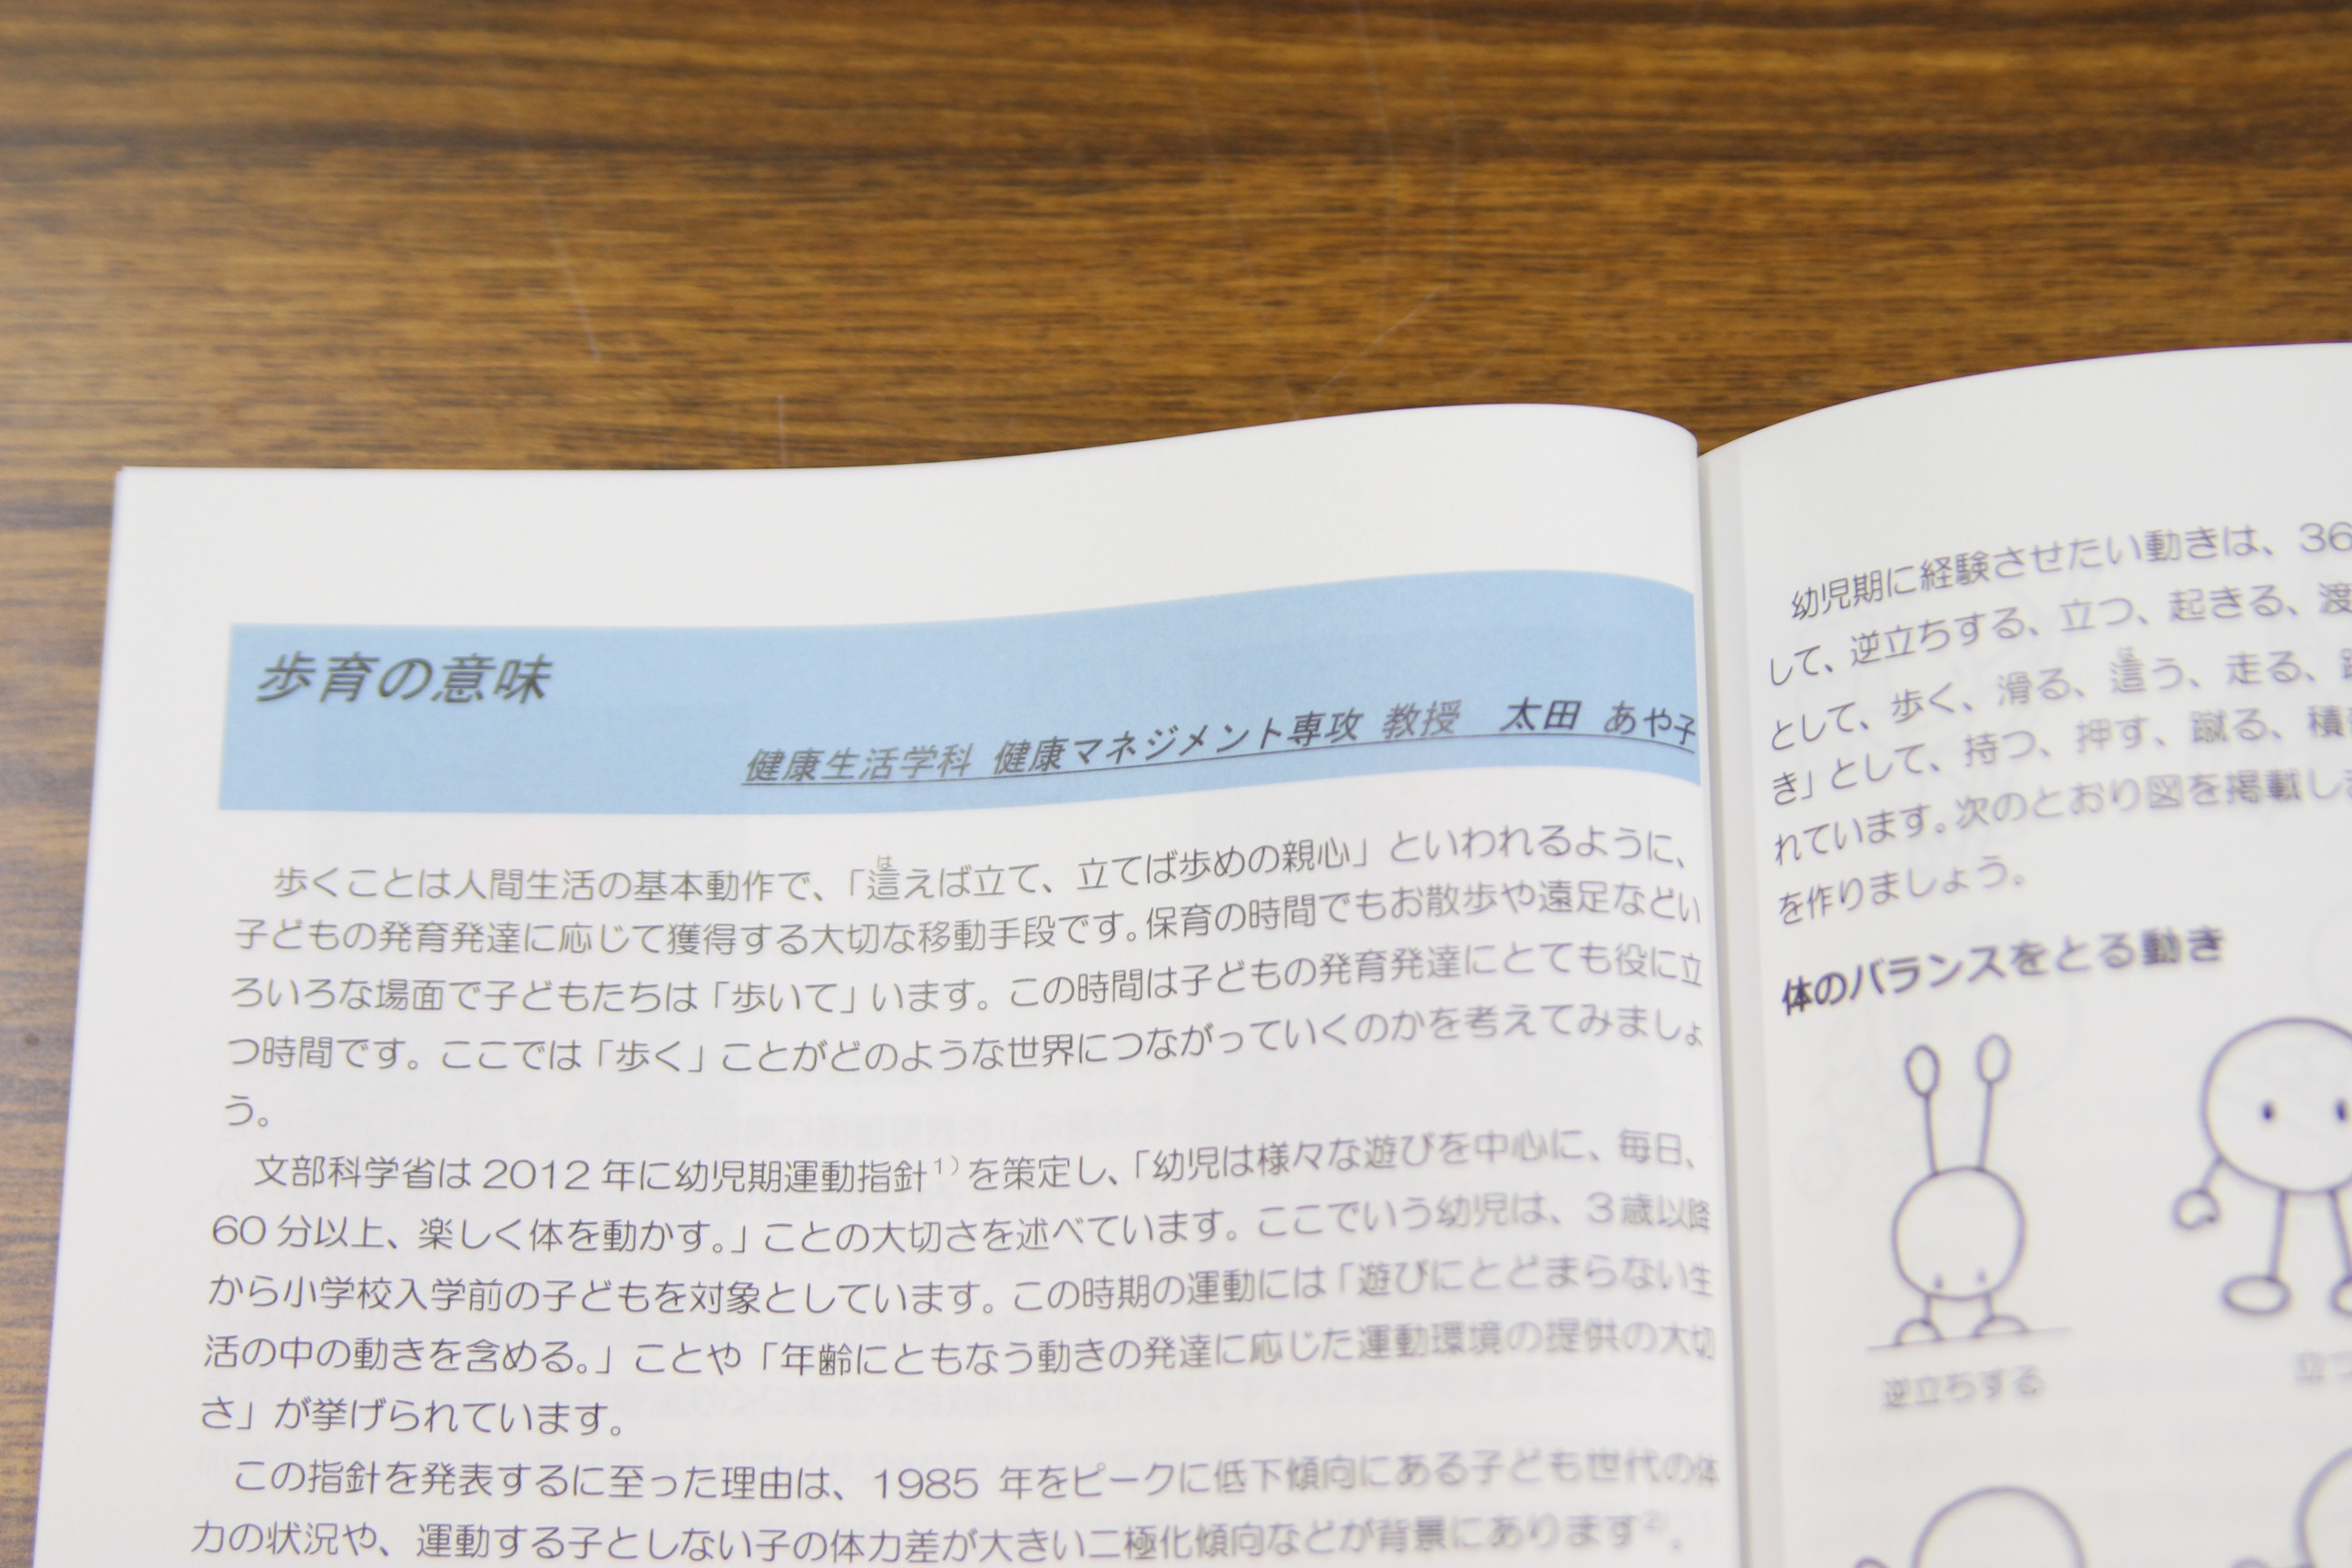 歩育の意味
健康生活学科 健康マネジメント専攻 教授 太田 あや子
歩くことは人間生活の基本動作で、「這えば立て、立てば歩めの親心」といわれるように、
は
子どもの発育発達に応じて獲得する大切な移動手段です。保育の時間でもお散歩や遠足などい
ろいろな場面で子どもたちは「歩いて」います。この時間は子どもの発育発達にとても役に立
つ時間です。ここでは「歩く」ことがどのような世界につながっていくのかを考えてみましょ
う。
文部科学省は 2012 年に幼児期運動指針1)を策定し、「幼児は様々な遊びを中心に、毎日、
60 分以上、楽しく体を動かす。」ことの大切さを述べています。ここでいう幼児は、3 歳以降
から小学校入学前の子どもを対象としています。この時期の運動には「遊びにとどまらない生
活の中の動きを含める。」ことや「年齢にともなう動きの発達に応じた運動環境の提供の大切
さ」が挙げられています。
この指針を発表するに至った理由は、1985 年をピークに低下傾向にある子ども世代の体
力の状況や、運動する子としない子の体力差が大きい二極化傾向などが背景にあります2)。
幼児期に経験させたい動きは、36
して、逆立ちする、立つ、起きる、渡
は
として、歩く、滑る、這う、走る、
き」として、持つ、押す、蹴る、積
れています。次のとおり図を掲載し
を作りましょう。
体のバランスをとる動き
逆立ちする
立つ